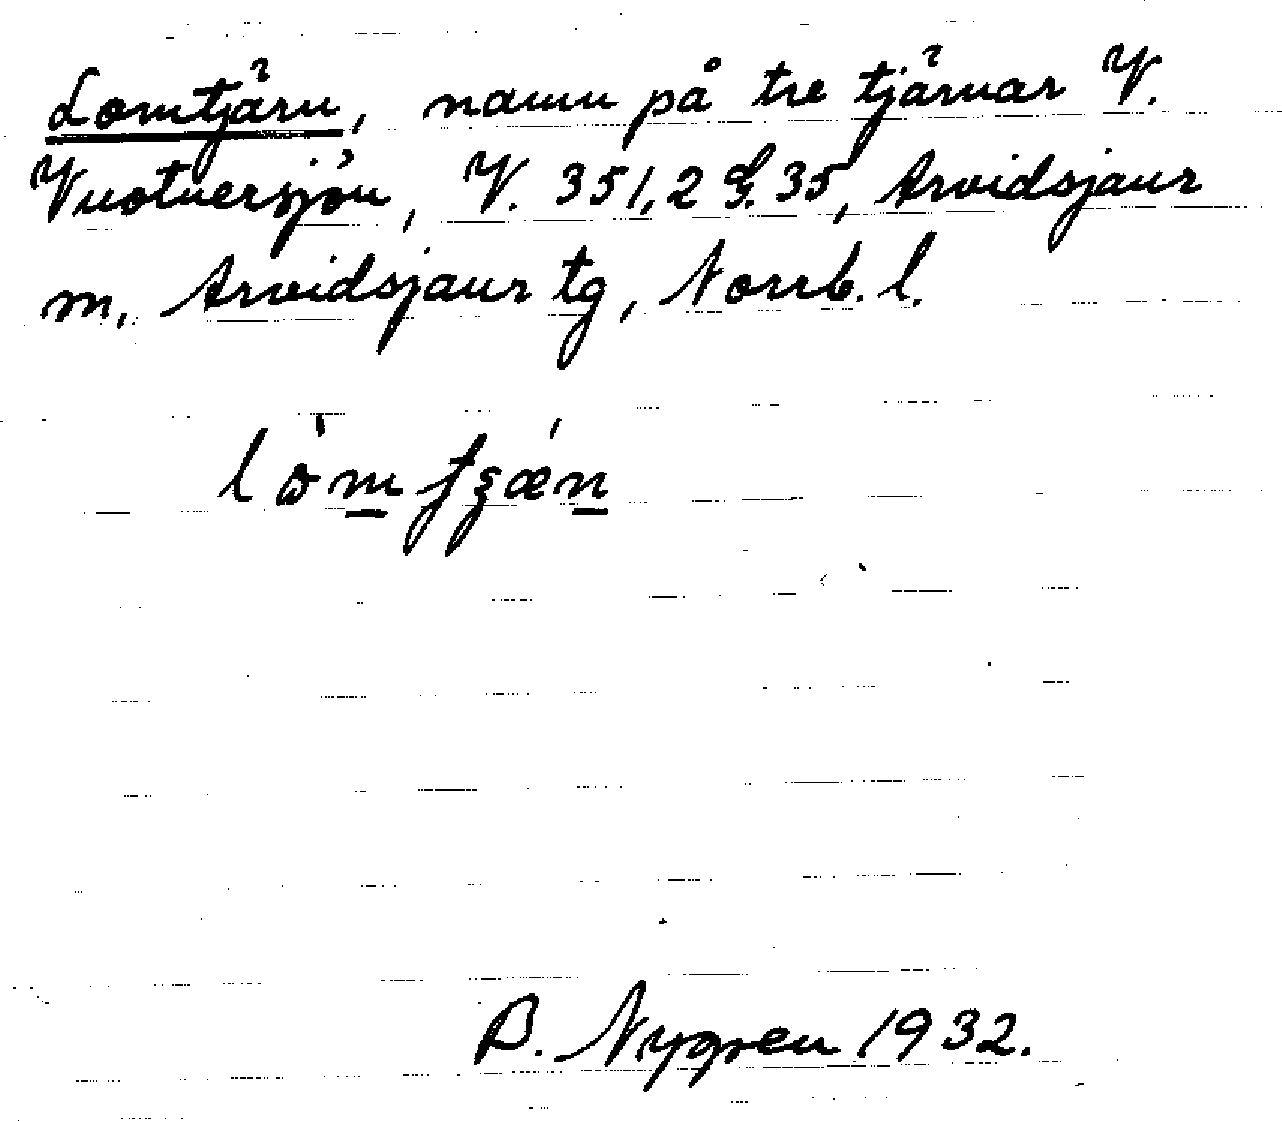 Lomtjärn, namn på tre tjärnar V.
Vuotnersjön, V. 351,2 G. 35, Arvidsjaur
m, Arvidsjaur tg, Norrb. l.
B. Nygren 1932.